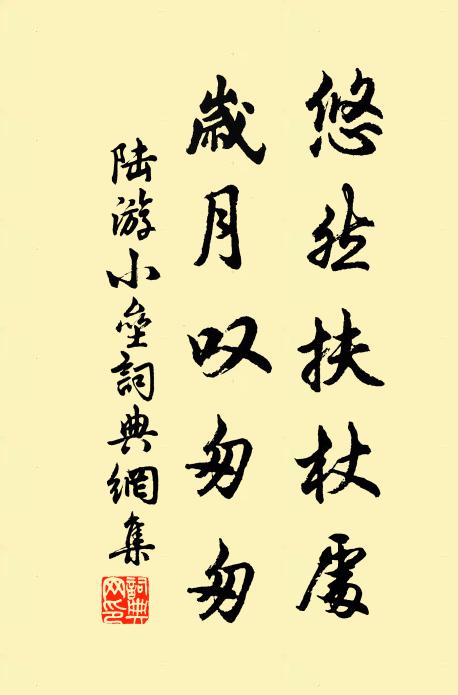 悠然扶杖處
歲月叹匆匆
陸游小壘詞典網集
詞典网印